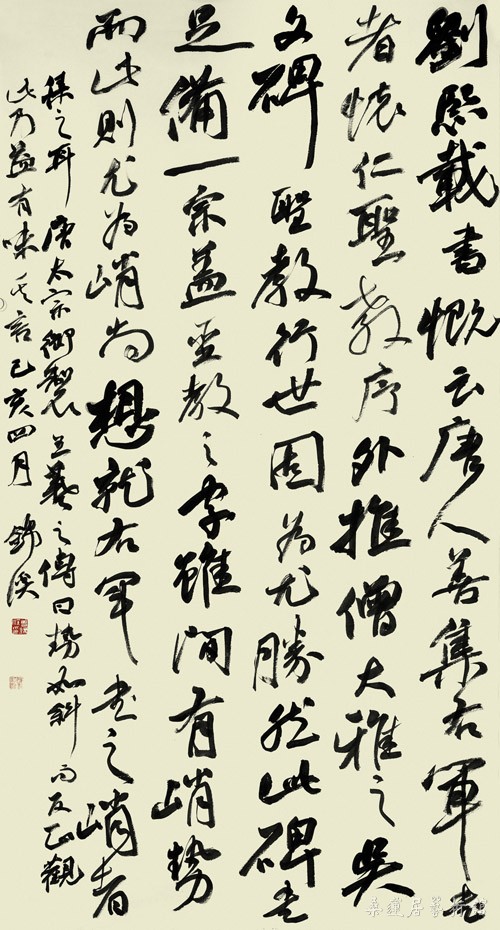 劉熙載書慨云唐人善集右軍書
者懷仁聖教序外推僧大雅之吳
文碑聖教行世固為尤勝然此碑書
足備一宗蓋聖教之字雖間有峭勢
而此則尤為峭尚想就右軍書之峭者
集之耳唐太宗御製王羲之傳曰勢如斜而反正觀
此乃益有味其言己亥四月錦溪
桑蓮居藝術館